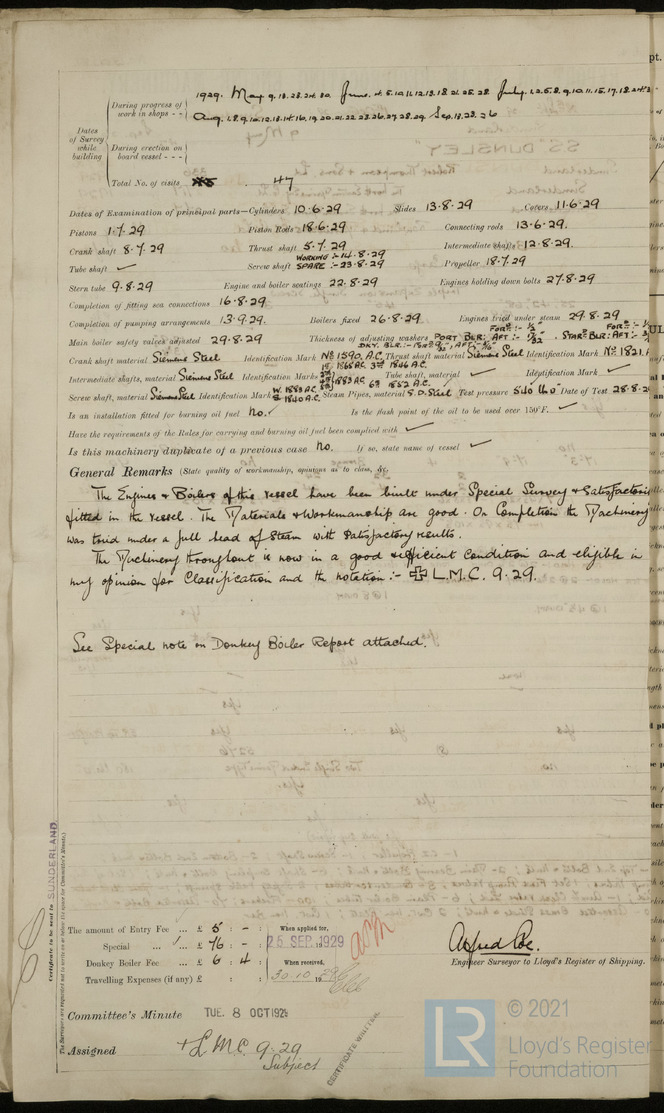 Dates of Survey while building
During progress of work in shops - - 1929. May 9.18.23.24.30 June. 4.5.10.11.12.13.18.21.25.28 July. 1.2.5.8.9.10.11.15.17.18.24
Aug. 1.8.9.10.12.13.14.16.19.20.21.22.23.26.27.28.29 Sep. 13.23.26
During erection on board vessel - - -
Total No. of visits 47
Dates of Examination of principal parts—Cylinders 10.6.29 Slides 13.8.29 Covers 11.6.29
Pistons 1.7.29 Piston Rods 18.6.29 Connecting rods 13.6.29.
Crank shaft 8.7.29 Thrust shaft 5.7.29 Intermediate shafts 12.8.29
Tube shaft ✓ Screw shaft WORKING :- 14.8.29 SPARE :- 23.8.29 Propeller 18.7.29
Stern tube 9.8.29 Engine and boiler seatings 22.8.29 Engines holding down bolts 27.8.29
Completion of fitting sea connections 16.8.29
Completion of pumping arrangements 13.9.29. Boilers fixed 26.8.29 Engines tried under steam 29.8.29
Main boiler safety valves adjusted 29.8.29 Thickness of adjusting washers PORT BLR: AFT :- FOR: :- STAR: BLR: AFT :- FOR: :-
Crank shaft material Siemens Steel Identification Mark No 1590. A.C. Thrust shaft material Siemens Steel Identification Mark No 1821
Intermediate shafts, material Siemens Steel Identification Marks Tube shaft, material ✓ Identification Mark ✓
Screw shaft, material Siemens Steel Identification Mark W. 1883 AC S 1840 A.C. Steam Pipes, material S.D. Steel Test pressure 540 lbs Date of Test 28.8.2
Is an installation fitted for burning oil fuel No. ✓ Is the flash point of the oil to be used over 150°F. ✓
Have the requirements of the Rules for carrying and burning oil fuel been complied with ✓
Is this machinery duplicate of a previous case No. If so, state name of vessel ✓
General Remarks (State quality of workmanship, opinions as to class, &c.
The Engines & Boilers of this vessel have been built under Special Survey & Satisfactorily
fitted in the vessel. The Materials & Workmanship are good. On Completion the Machinery
was tried under a full head of Steam with satisfactory results.
The Machinery throughout is now in a good & efficient condition and eligible in
my opinion for Classification and the notation :- ✠ L.M.C. 9.29.
See Special note on Donkey Boiler Report attached.
Certificate to be sent to SUNDERLAND.
(The Surveyors are requested not to write on or below the space for Committee's Minute.)
The amount of Entry Fee ... £ 5 : - : When applied for,
Special ... £ 76 : - : 25 SEP. 1929
Donkey Boiler Fee ... £ 6 : 4 : When received,
Travelling Expenses (if any) £ : : 30.10.1929
Alfred Coe.
Engineer Surveyor to Lloyd's Register of Shipping.
Committee's Minute TUE. 8 OCT 1929
Assigned + L.M.C. 9.29
Subject
CERTIFICATE WRITTEN
LR
© 2021
Lloyd's Register
Foundation